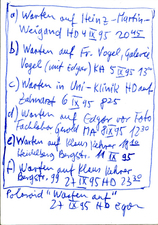 a) Warten auf Heinz-Martin-
Weigand HD 4 IX 95 20 45
b) Warten auf Fr. Vogel, Galerie
Vogel (mit Edgar) KA 5 IX 95
c) Warten in Uni-Klinik HD auf
Zahnarzt 6 IX 95 8 25
d) Warten auf Edgar vor Foto
Fachlabor MA 8 IX 95 12 30
e) Warten auf Klaus Kehrer
Heidelberg Bergstr. IX 95
f) Warten auf Klaus Kehrer
Bergstr. 99 27 IX 95 HD 23 30
Polaroid "Warten auf"
27 IX 95 HD egon